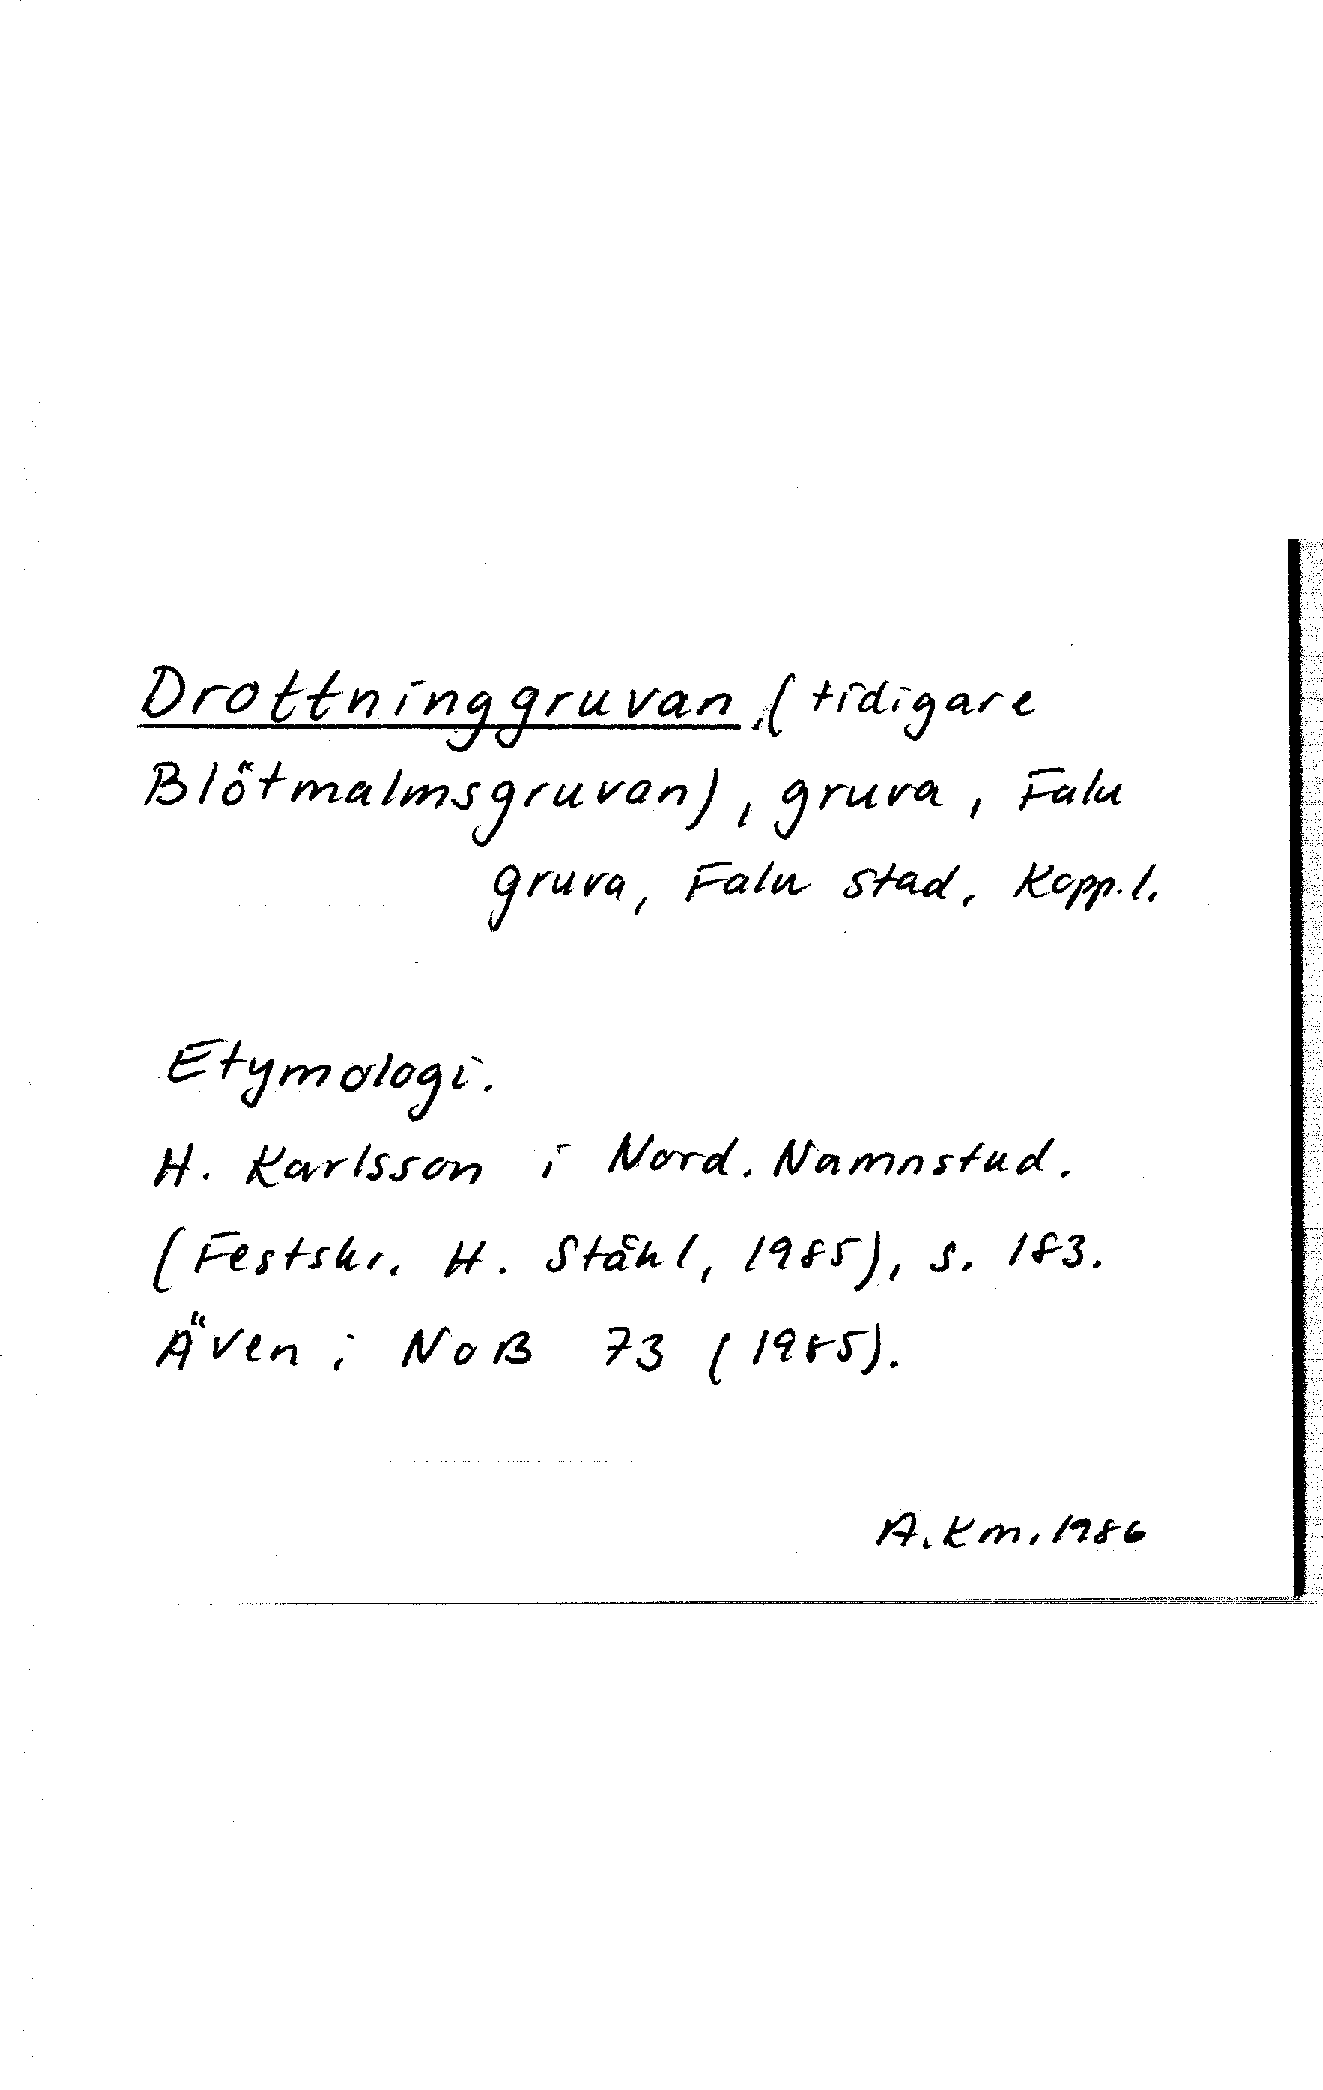 Drottninggruvan (tidigare
Blötmalmsgruvan), gruva, Falu
gruva, Falu stad, Kopp.l.
Etymologi.
H. Karlsson i Nord. Namnstud.
(Festskr. H. Ståhl, 1985), s. 183.
Även i NoB 73 (1985).
A.Km.1986